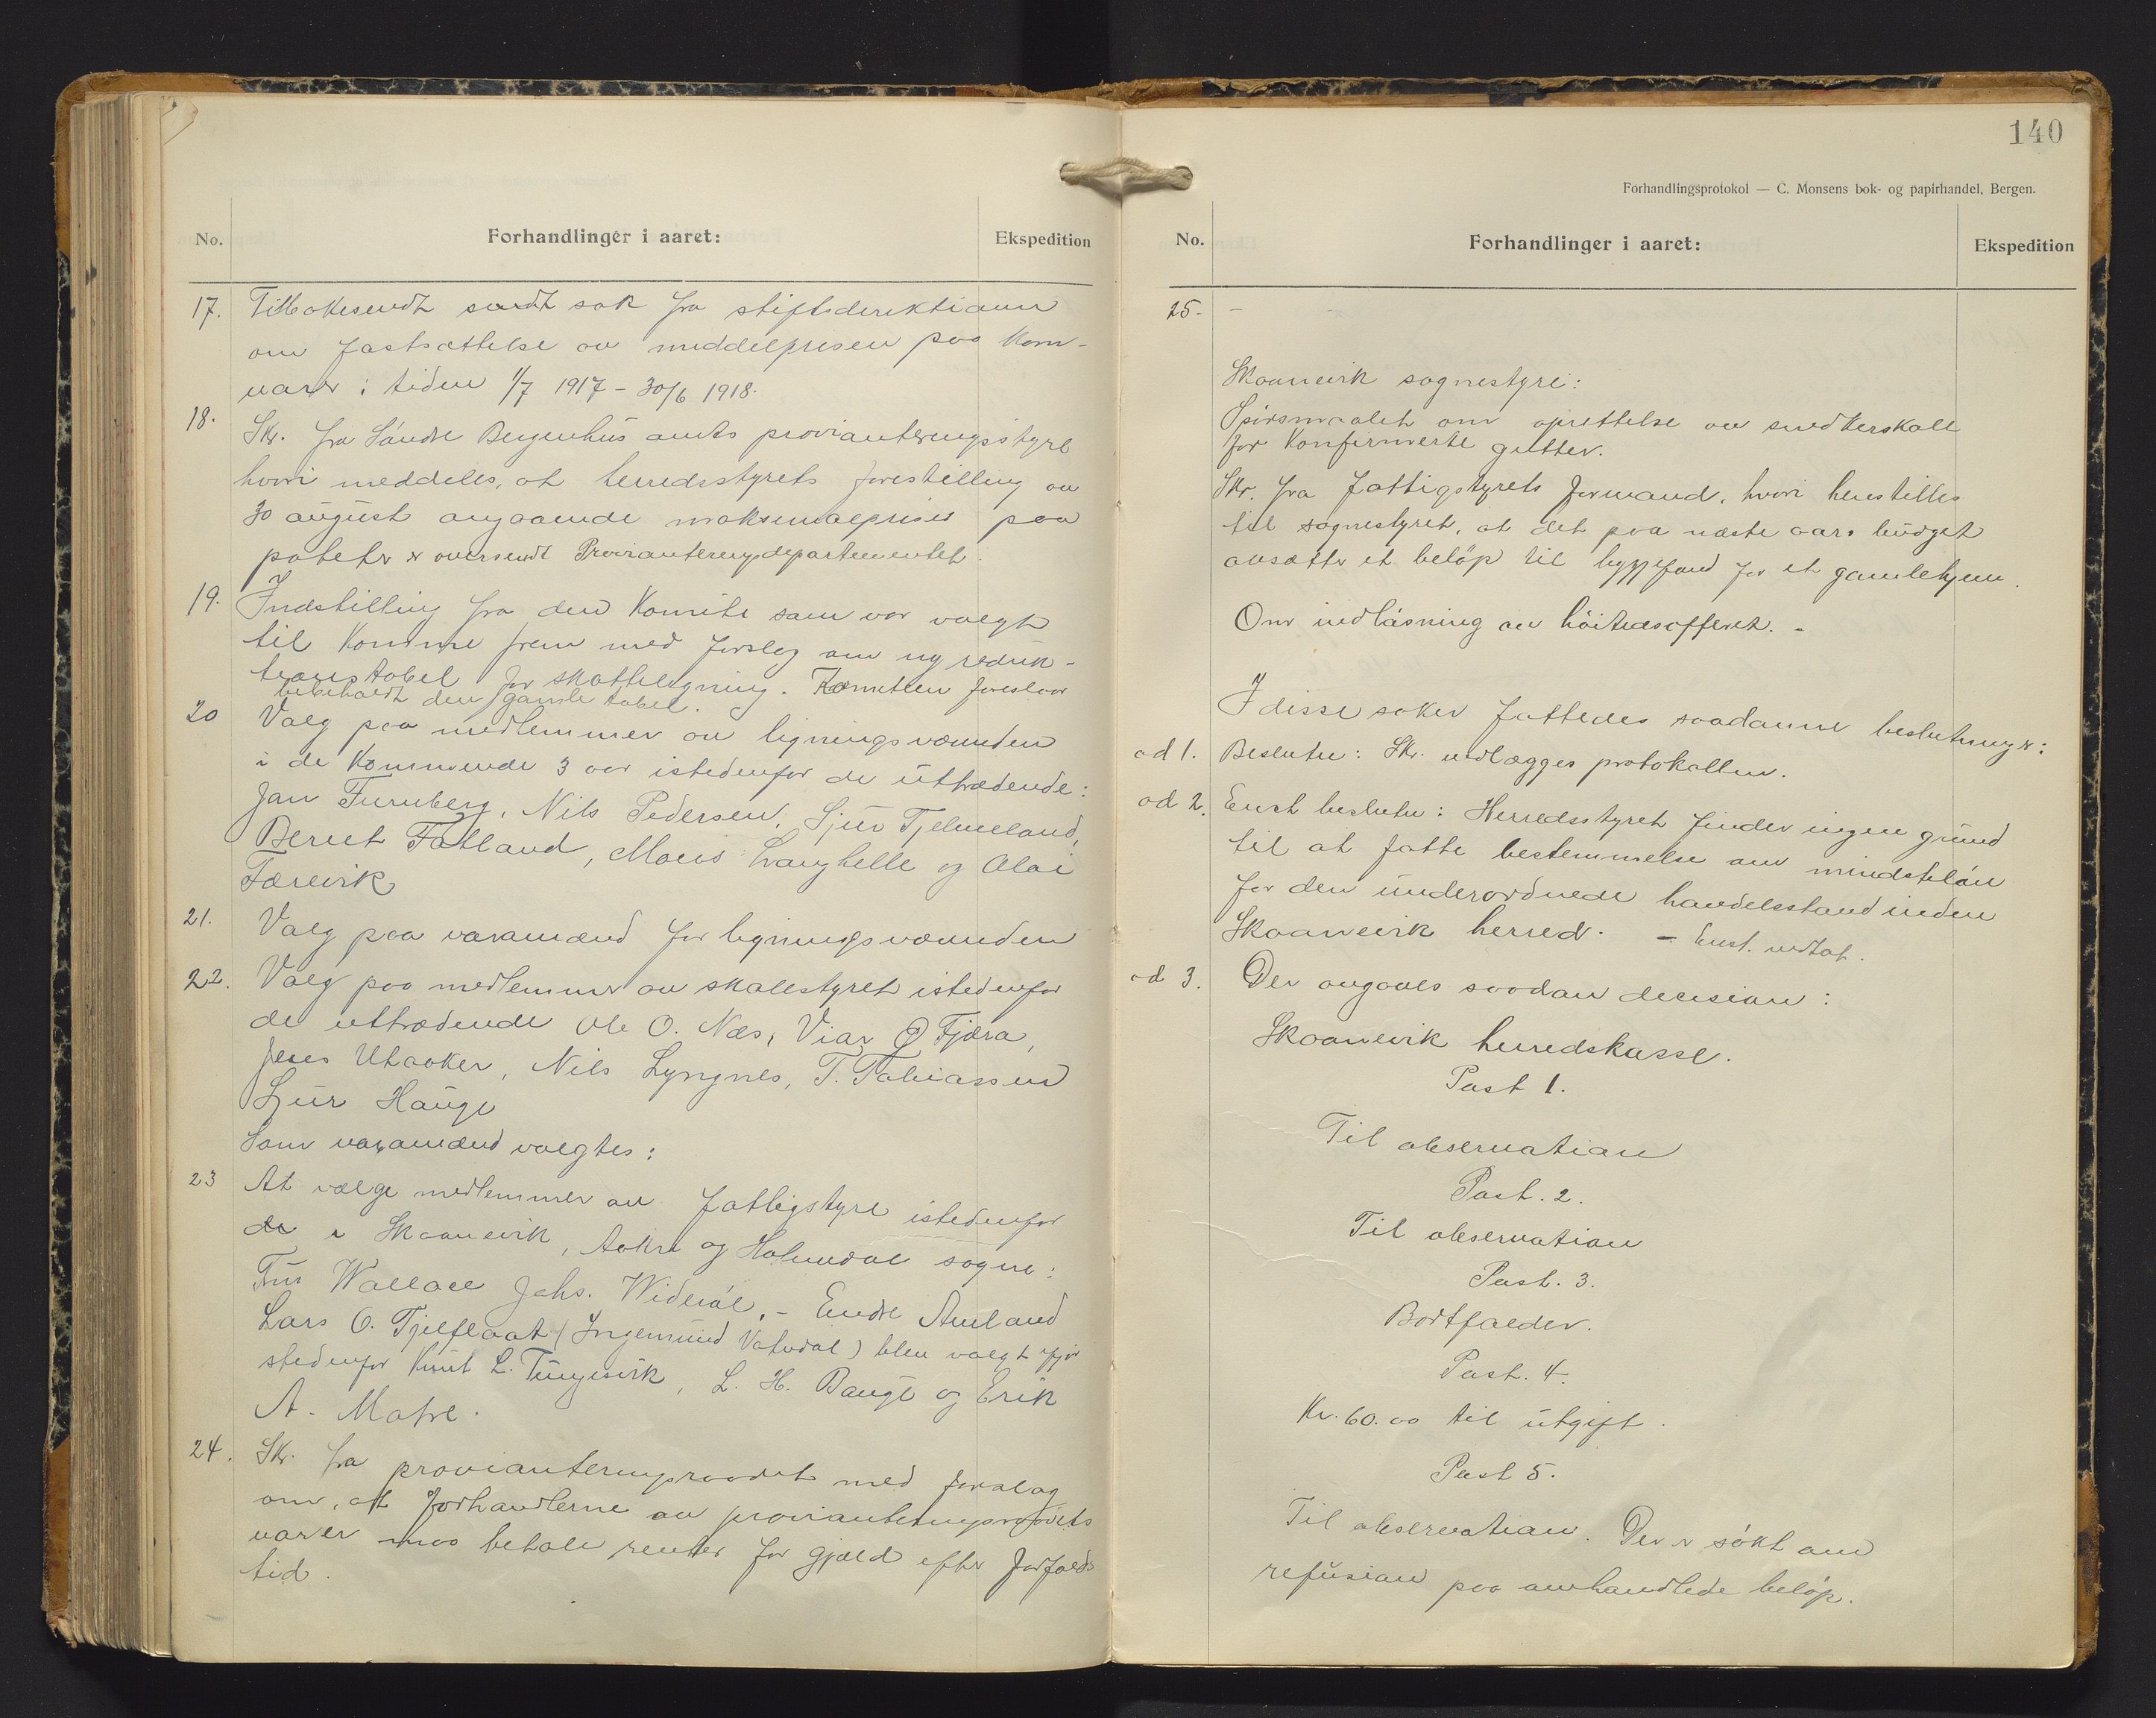 No.
Forhandlinger i aaret:
Ekspedition
17. Tilbakesendt sendt sak fra stiftsdirektionen
om fastsættelse av middelprisen paa korn-
varer i tiden 1/7 1917 - 30/6 1918.
18. Skr. fra Söndre Bergenhus amts provianteringsstyre
hvori meddeles, at herredsstyrets forestilling av
30 august angaaende maksimalpriser paa
poteter er oversendt Provianteringsdepartementet.
19. Indstilling fra den komite som var valgt
til komme frem med forslag om ny reduk-
tionstabel for skatteligning. Komiteen foreslaar
bibeholdt den gamle tabel.
20 Valg paa medlemmer av ligningsvæmnden
i de kommende 3 aar istedenfor de uttrædende:
Jan Furuberg, Nils Pedersen, Sjur Tjelmeland,
Berut Fatland, Mons Langhelle og Olai
Færevik
21. Valg paa varamænd for ligningsvæmnden
22. Valg paa medlemmer av skolestyret istedenfor
de uttrædende Ole O. Næs, Viar O Fjæra,
Jens Utaaker, Nils Lyngnes, T. Tobiassen
Sjur Hauge
Som varamænd valgtes:
23 At vælge medlemmer av fattigstyre istedenfor
de i Skaanevik, Aakre og Holmdal sogne:
Wallace Johs. Wideröe, - Endre Amland
Lars O. Tjelflaat (Ingemund Vatndal) blev valgt ifjor
stedenfor Knut L. Tungesvik, L. H. Bauge og Erik
A. Matre.
24. Skr. fra provianteringsraadet med forslag
om, at forhandlerne av provianteringsraadets
varer maa betale renter for gjæld efter forfalds
tid.
140
Forhandlingsprotokol — C. Monsens bok- og papirhandel, Bergen.
No.
Forhandlinger i aaret:
Ekspedition
25. -
Skaanevik sognestyre:
Spörsmaalet om oprettelse av smedkerskole
for konfirmerte gutter.
Skr. fra fattigstyrets formand, hvori henstilles
til sognestyret, at det paa næste aars budget
avsætter et belöp til byggefond for et gamlehjem.
Om indlösning av höitidsofferet. -
I disse saker fattedes saadanne beslutninger:
ad 1. Beslutn: Skr. vedlægges protokollen.
ad 2. Enst beslutn: Herredsstyret finder ingen grund
til at fatte bestemmelse om mindstelön
for den underordnede handelsstand inden
Skaanevik herred. - Enst. vedtat.
ad 3. Der avgaves saadan decision:
Skaanevik herredskasse.
Post 1.
Til observation
Post. 2.
Til observation
Post. 3.
Bortfalder.
Post. 4.
Kr. 60.00 til utgift.
Post 5.
Til observation. Der er sökt om
refusion paa omhandlede belöp.